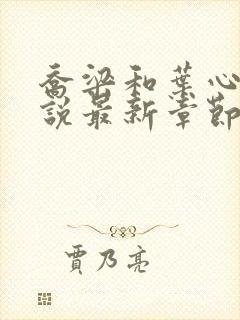 喬梁和葉心
說最新章節
賈乃亮